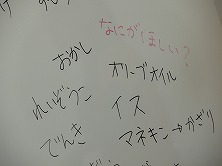 なにがほしい?
おかし
オリーブオイル
れいぞうこ
イス
でんき
マネキン→かざり